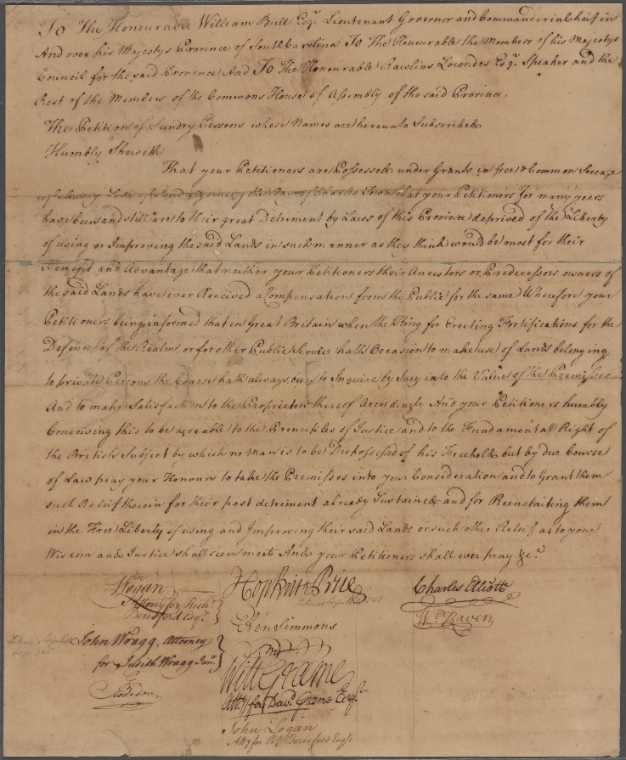 To The Honourable William Bull Esqr. Lieutenant Governor and Commander in Cheif in
And over his Majestys Province of South Carolina To The Honourable the Members of his Majestys
Council for the said Province And To The Honourable Rawlins Lowndes Esqr. Speaker and the
Rest of the Members of the Commons House of Assembly of the said Province.
The Petition of Sundry Persons whose Names are hereunto Subscribed
Humbly Sheweth
That your Petitioners are Possessed under Grants in free & Common Soccage
of Sundry Lots of Land adjoining the Town that your Petitioners for many years
have been and still are to their great Detriment by Laws of this Province deprived of the Liberty
of using or Improving the said Lands in such manner as they think would be most for their
Benefit and Advantage that neither your Petitioners their Ancestors or Predecessors owners of
the said Lands have ever Received a Compensation from the Public for the same Wherefore your
Petitioners being informed that in Great Britain when the King for Erecting Fortifications for the
Defence of the Realm or for other Public Service hath Occasion to make use of Lands belonging
to private Persons the Course hath always been to Inquire by Jury into the Value of the Premisses
And to make Satisfaction to the Proprietors thereof Accordingly And your Petitioners humbly
Conceiving this to be agreable to the Principles of Justice and to the Fundamentall Right of
the British Subject by which no Man is to be Disposessed of his Freehold but by due Course
of Law pray your Honours to take the Premisses into your Consideration and to Grant them
such Releif therein for their past detriment already Sustained and for Reinstating them
in the Free Liberty of using and Improving their said Lands or such other Releif as to your
Wisdom and Justice shall seem meet And your Petitioners shall ever pray &c.
Logan
Attorny for Richd.
Beresford Esqr.
Hopkin Price
Charles Elliott
Wm. Raven
Ebenr Simmons
John Wragg, Attorney
for Judith Wragg Junr.
Will Graeme
Atty for Davd. Graeme Esqr.
John Logan
Atty for Rd. Beresford Esqr.